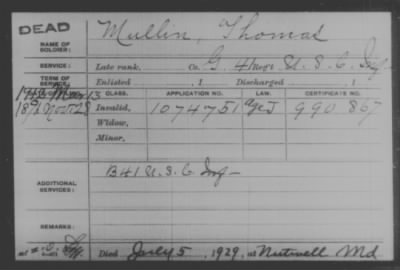 DEAD
NAME OF SOLDIER: Mullin, Thomas
SERVICE: Late rank, Co. G, 41 Reg't U. S. C. Inf
TERM OF SERVICE: Enlisted , 1 Discharged , 1
CLASS. APPLICATION NO. LAW. CERTIFICATE NO.
Invalid, 1074751 990867
Widow,
Minor,
ADDITIONAL SERVICES: B 41 U. S. C. Inf
REMARKS:
Died July 5, 1929, at Nutwell Md